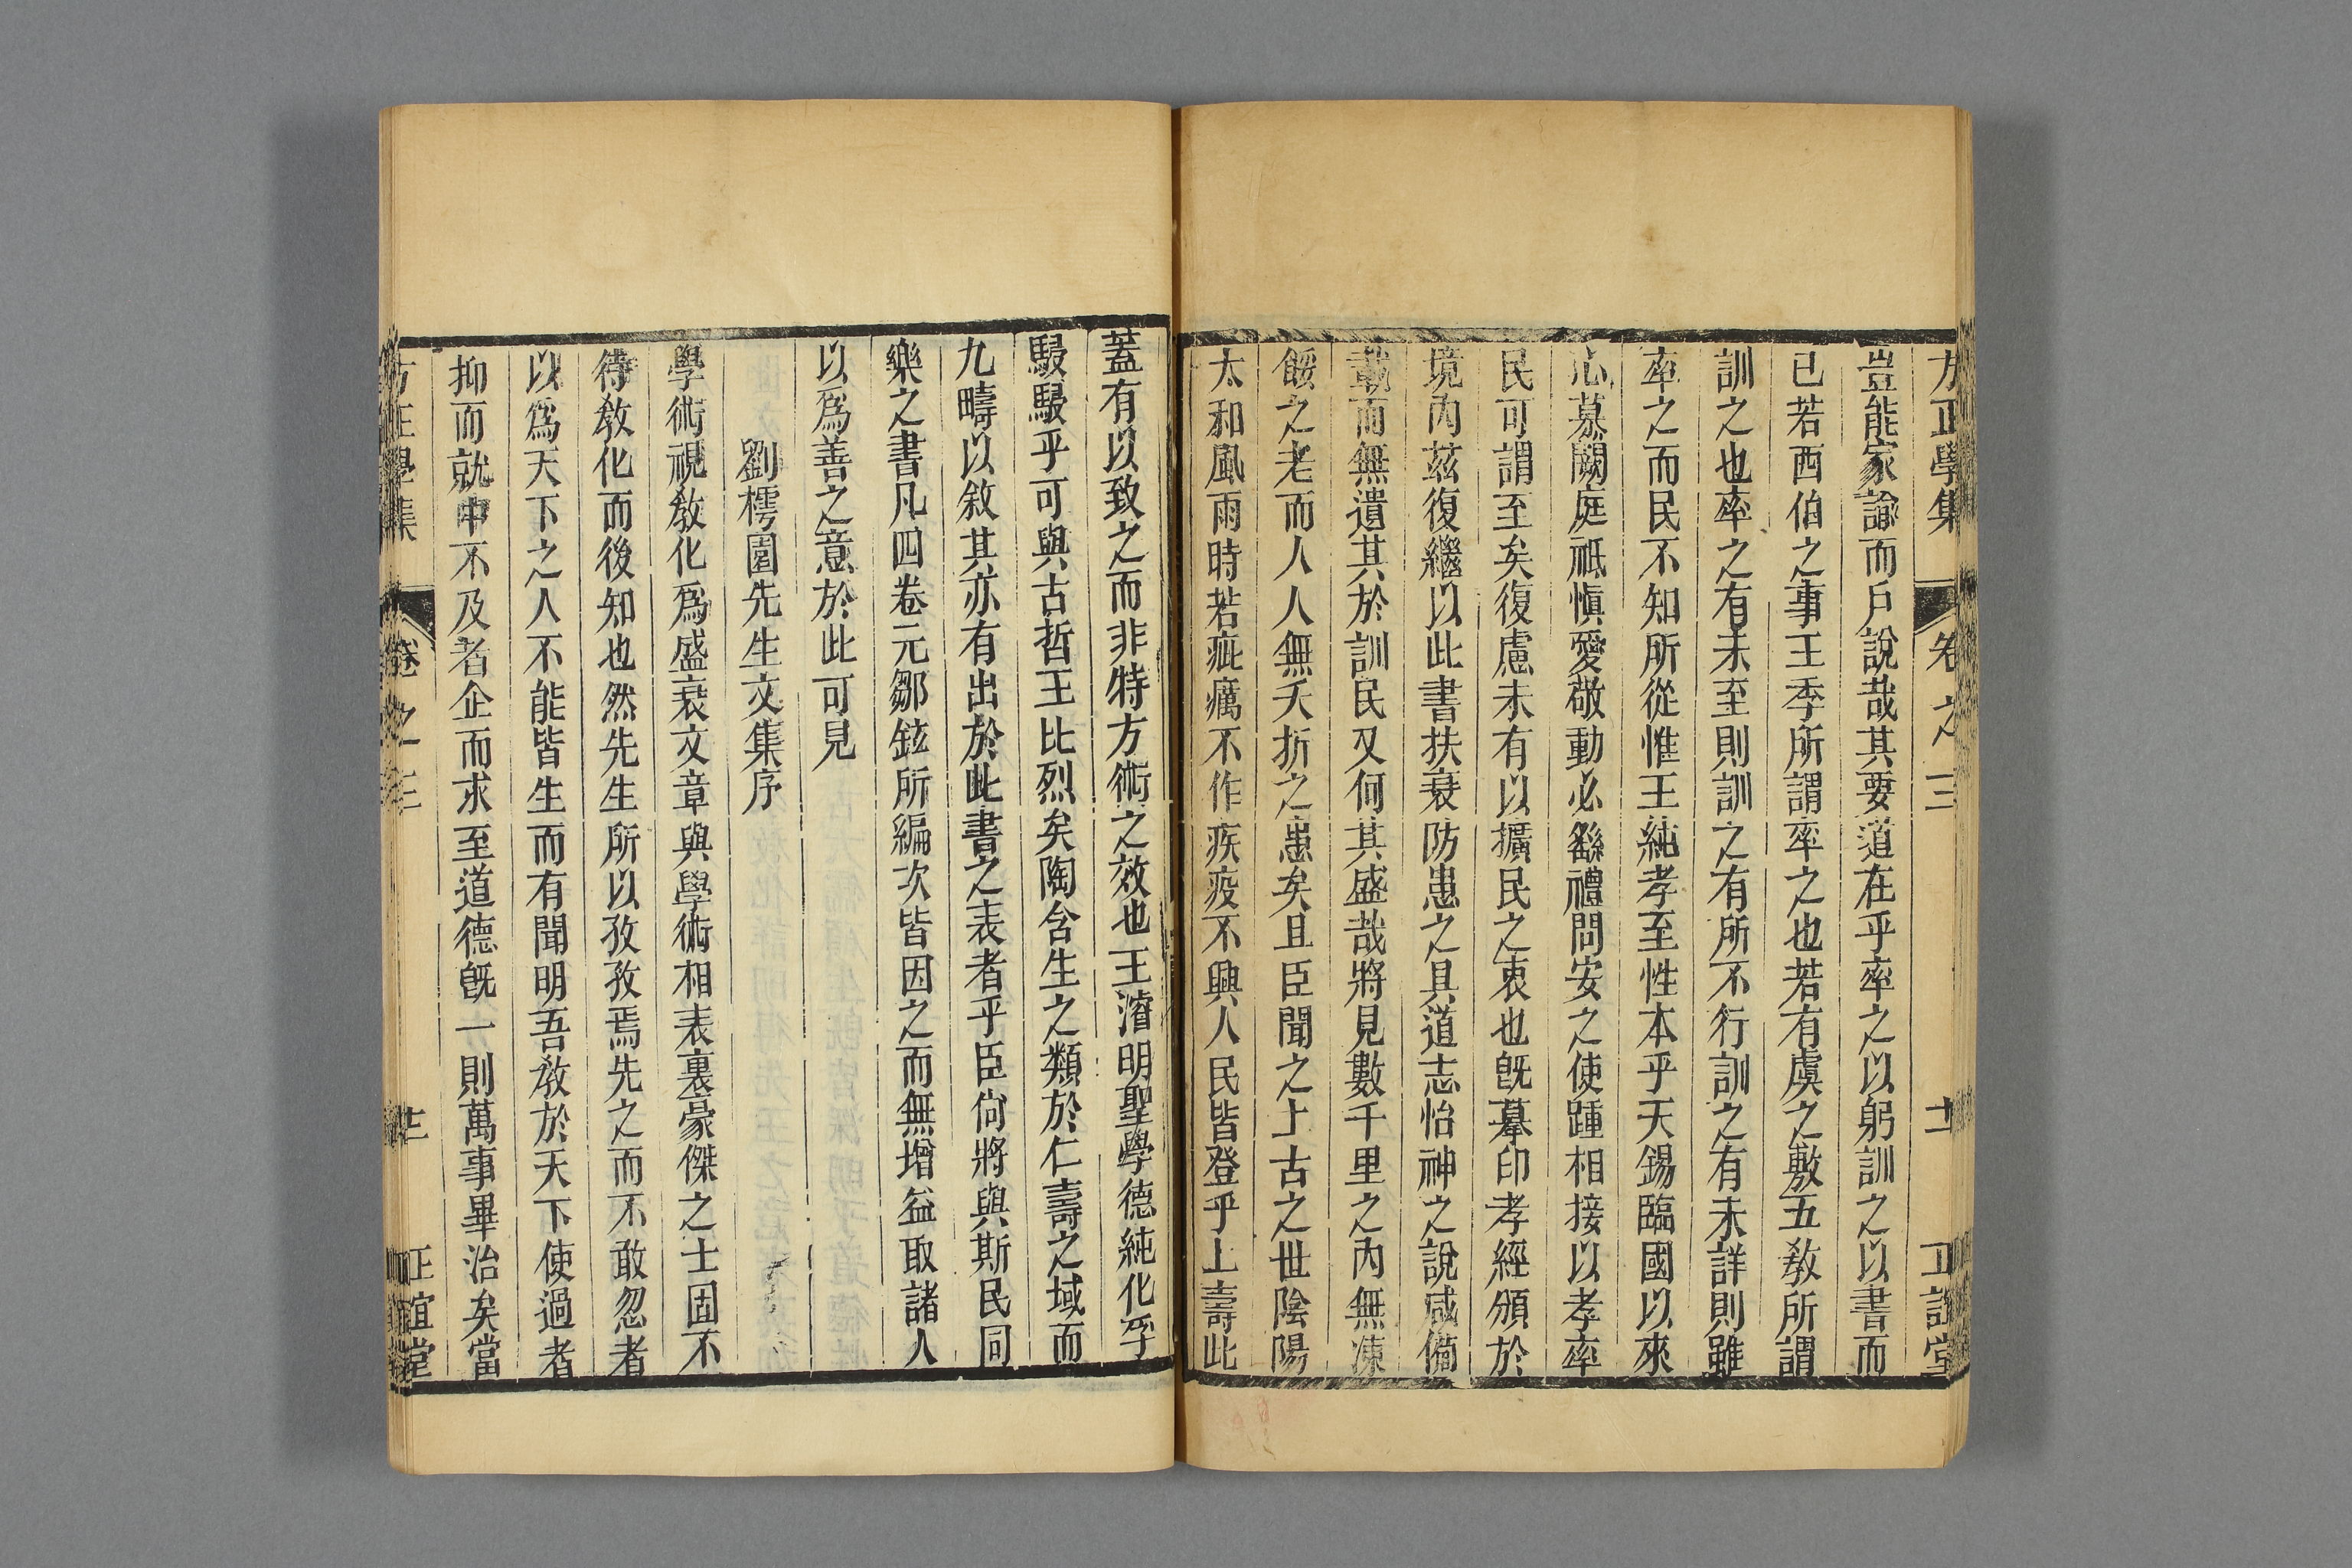 方正學集 卷之三 十一 正誼堂
豈能家諭而戶說哉其要道在乎率之以躬訓之以書而
已若西伯之事王季所謂率之也若有虞之敷五教所謂
訓之也率之有未至則訓之有所不行訓之有未詳則雖
率之而民不知所從惟王純孝至性本乎天錫臨國以來
心慕闕庭祗愼愛敬動必繇禮問安之使踵相接以孝率
民可謂至矣復慮未有以擴民之衷也旣摹印孝經頒於
境內茲復繼以此書扶衰防患之具道志怡神之說咸備
載而無遺其於訓民又何其盛哉將見數千里之內無凍
餒之老而人人無夭折之患矣且臣聞之上古之世陰陽
太和風雨時若疵癘不作疾疫不興人民皆登乎上壽此
蓋有以致之而非特方術之效也王濬明聖學德純化孚
駸駸乎可與古哲王比烈矣陶含生之類於仁壽之域而
九疇以敘其亦有出於此書之表者乎臣尙將與斯民同
樂之書凡四卷元鄒鉉所編次皆因之而無增益取諸人
以爲善之意於此可見
劉樗園先生文集序
學術視敎化爲盛衰文章與學術相表裏豪傑之士固不
待敎化而後知也然先生所以孜孜焉先之而不敢忽者
以爲天下之人不能皆生而有聞明吾敎於天下使過者
抑而就中不及者企而求至道德旣一則萬事畢治矣當
方正學集 卷之三 正誼堂